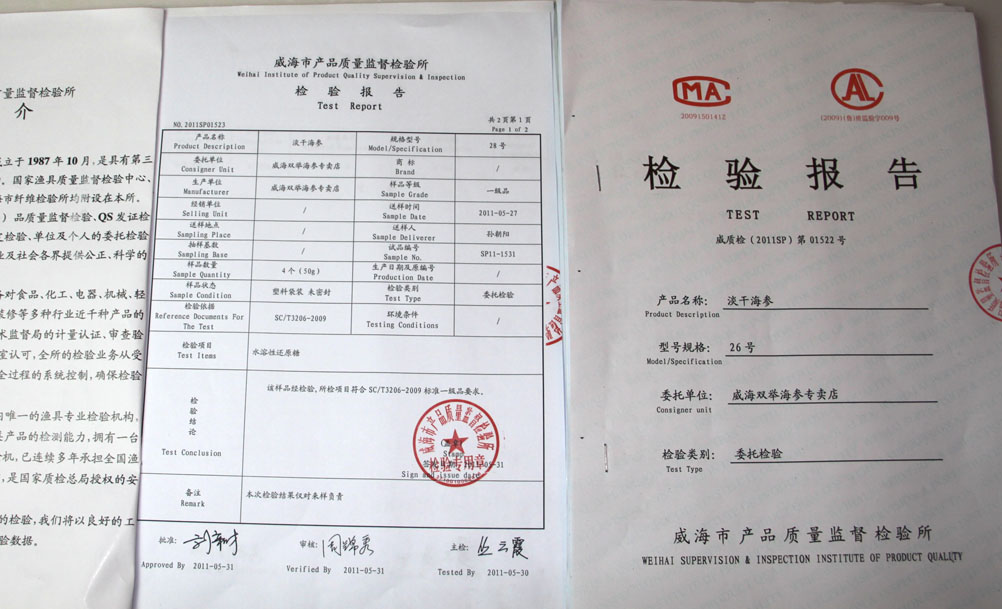 量监督检验所
介
立于 1987 年 10 月，是具有第三
。国家渔具质量监督检验中心、
海市纤维检验所均附设在本所。
）品质量监督检验、QS 发证检
检验、单位及个人的委托检验
业及社会各界提供公正、科学的
对食品、化工、电器、机械、轻
装修等多种行业近千种产品的
术监督局的计量认证、审查验
室认可，全所的检验业务从受
全过程的系统控制，确保检验
唯一的渔具专业检验机构，
产品的检测能力，拥有一台
机，已连续多年承担全国渔
，是国家质检总局授权的安
的检验，我们将以良好的工
验数据。
威海市产品质量监督检验所
Weihai Institute of Product Quality Supervision & Inspection
检 验 报 告
Test Report
NO.2011SP01523
共 2 页 第 1 页
Page 1 of 2
产品名称 淡干海参 规格型号 28 号
Product Description Model/Specification
委托单位 威海双举海参专卖店 商 标 /
Consigner Unit Brand
生产单位 威海双举海参专卖店 样品等级 一级品
Manufacturer Sample Grade
经销单位 / 送样时间 2011-05-27
Selling Unit Sample Date
送样地点 / 送样人 孙朝阳
Sampling Place Sample Deliverer
抽样基数 / 试品编号 SP11-1531
Sampling Base Sample No.
样品数量 4 个（50g） 生产日期及原编号 /
Sample Quantity Production Date
样品状态 塑料袋装 未密封 检验类别 委托检验
Sample Condition Test Type
检验依据 SC/T3206-2009 环境条件 /
Reference Documents For The Test Testing Conditions
检验项目 水溶性还原糖
Test Items
该样品经检验，所检项目符合 SC/T3206-2009 标准一级品要求。
检验结论
Test Conclusion
威海市产品质量监督检验所
检验专用章
Stamp
2011-05-31
Sign and issue date
备注 本次检验结果仅对来样负责
Remark
批准：
审核：
主检：
Approved By 2011-05-31
Verified By 2011-05-31
Tested By 2011-05-30
MA
20091501412
CAL
(2009)(鲁)质监验字009号
检 验 报 告
TEST REPORT
威质检（2011SP）第 01522 号
产品名称： 淡干海参
Product Description
型号规格： 26 号
Model/Specification
委托单位： 威海双举海参专卖店
Consigner unit
检验类别： 委托检验
Test Type
威海市产品质量监督检验所
WEIHAI SUPERVISION & INSPECTION INSTITUTE OF PRODUCT QUALITY